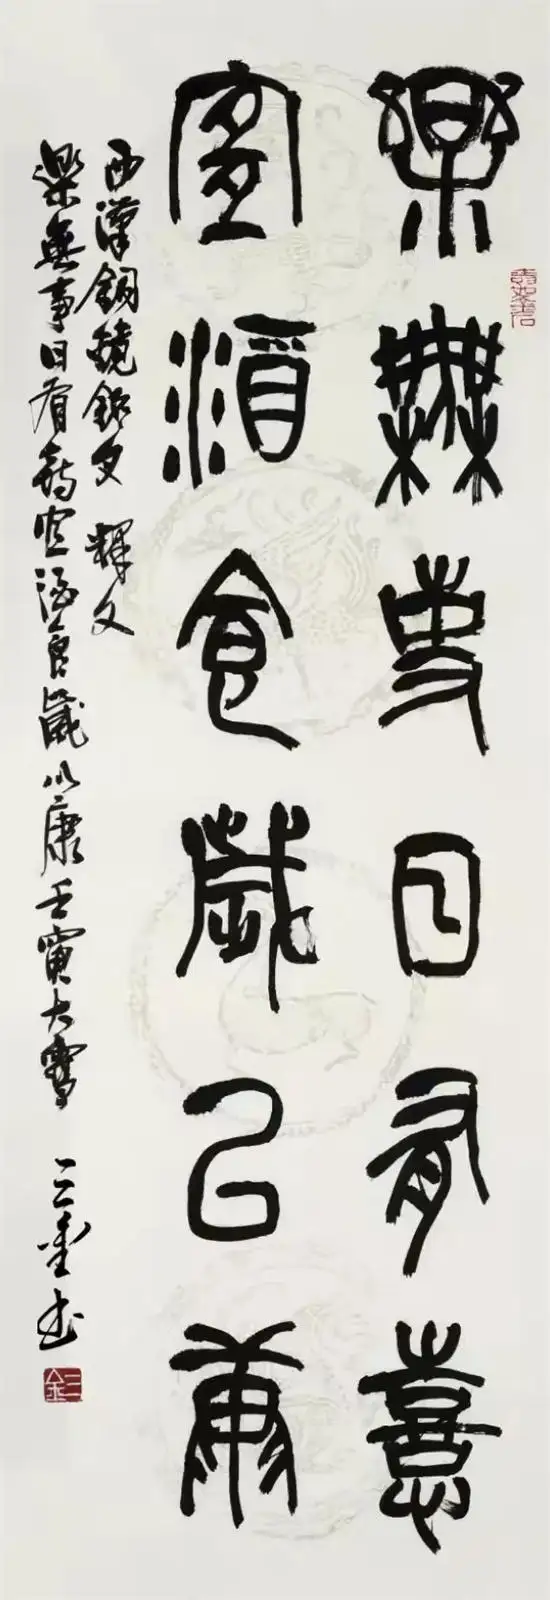 樂無事日有憙
宜酒食歲㠯康
西漢銅鏡銘文 釋文
樂無事日有憙宜酒食歲以康壬寅大雪 三金书
三金